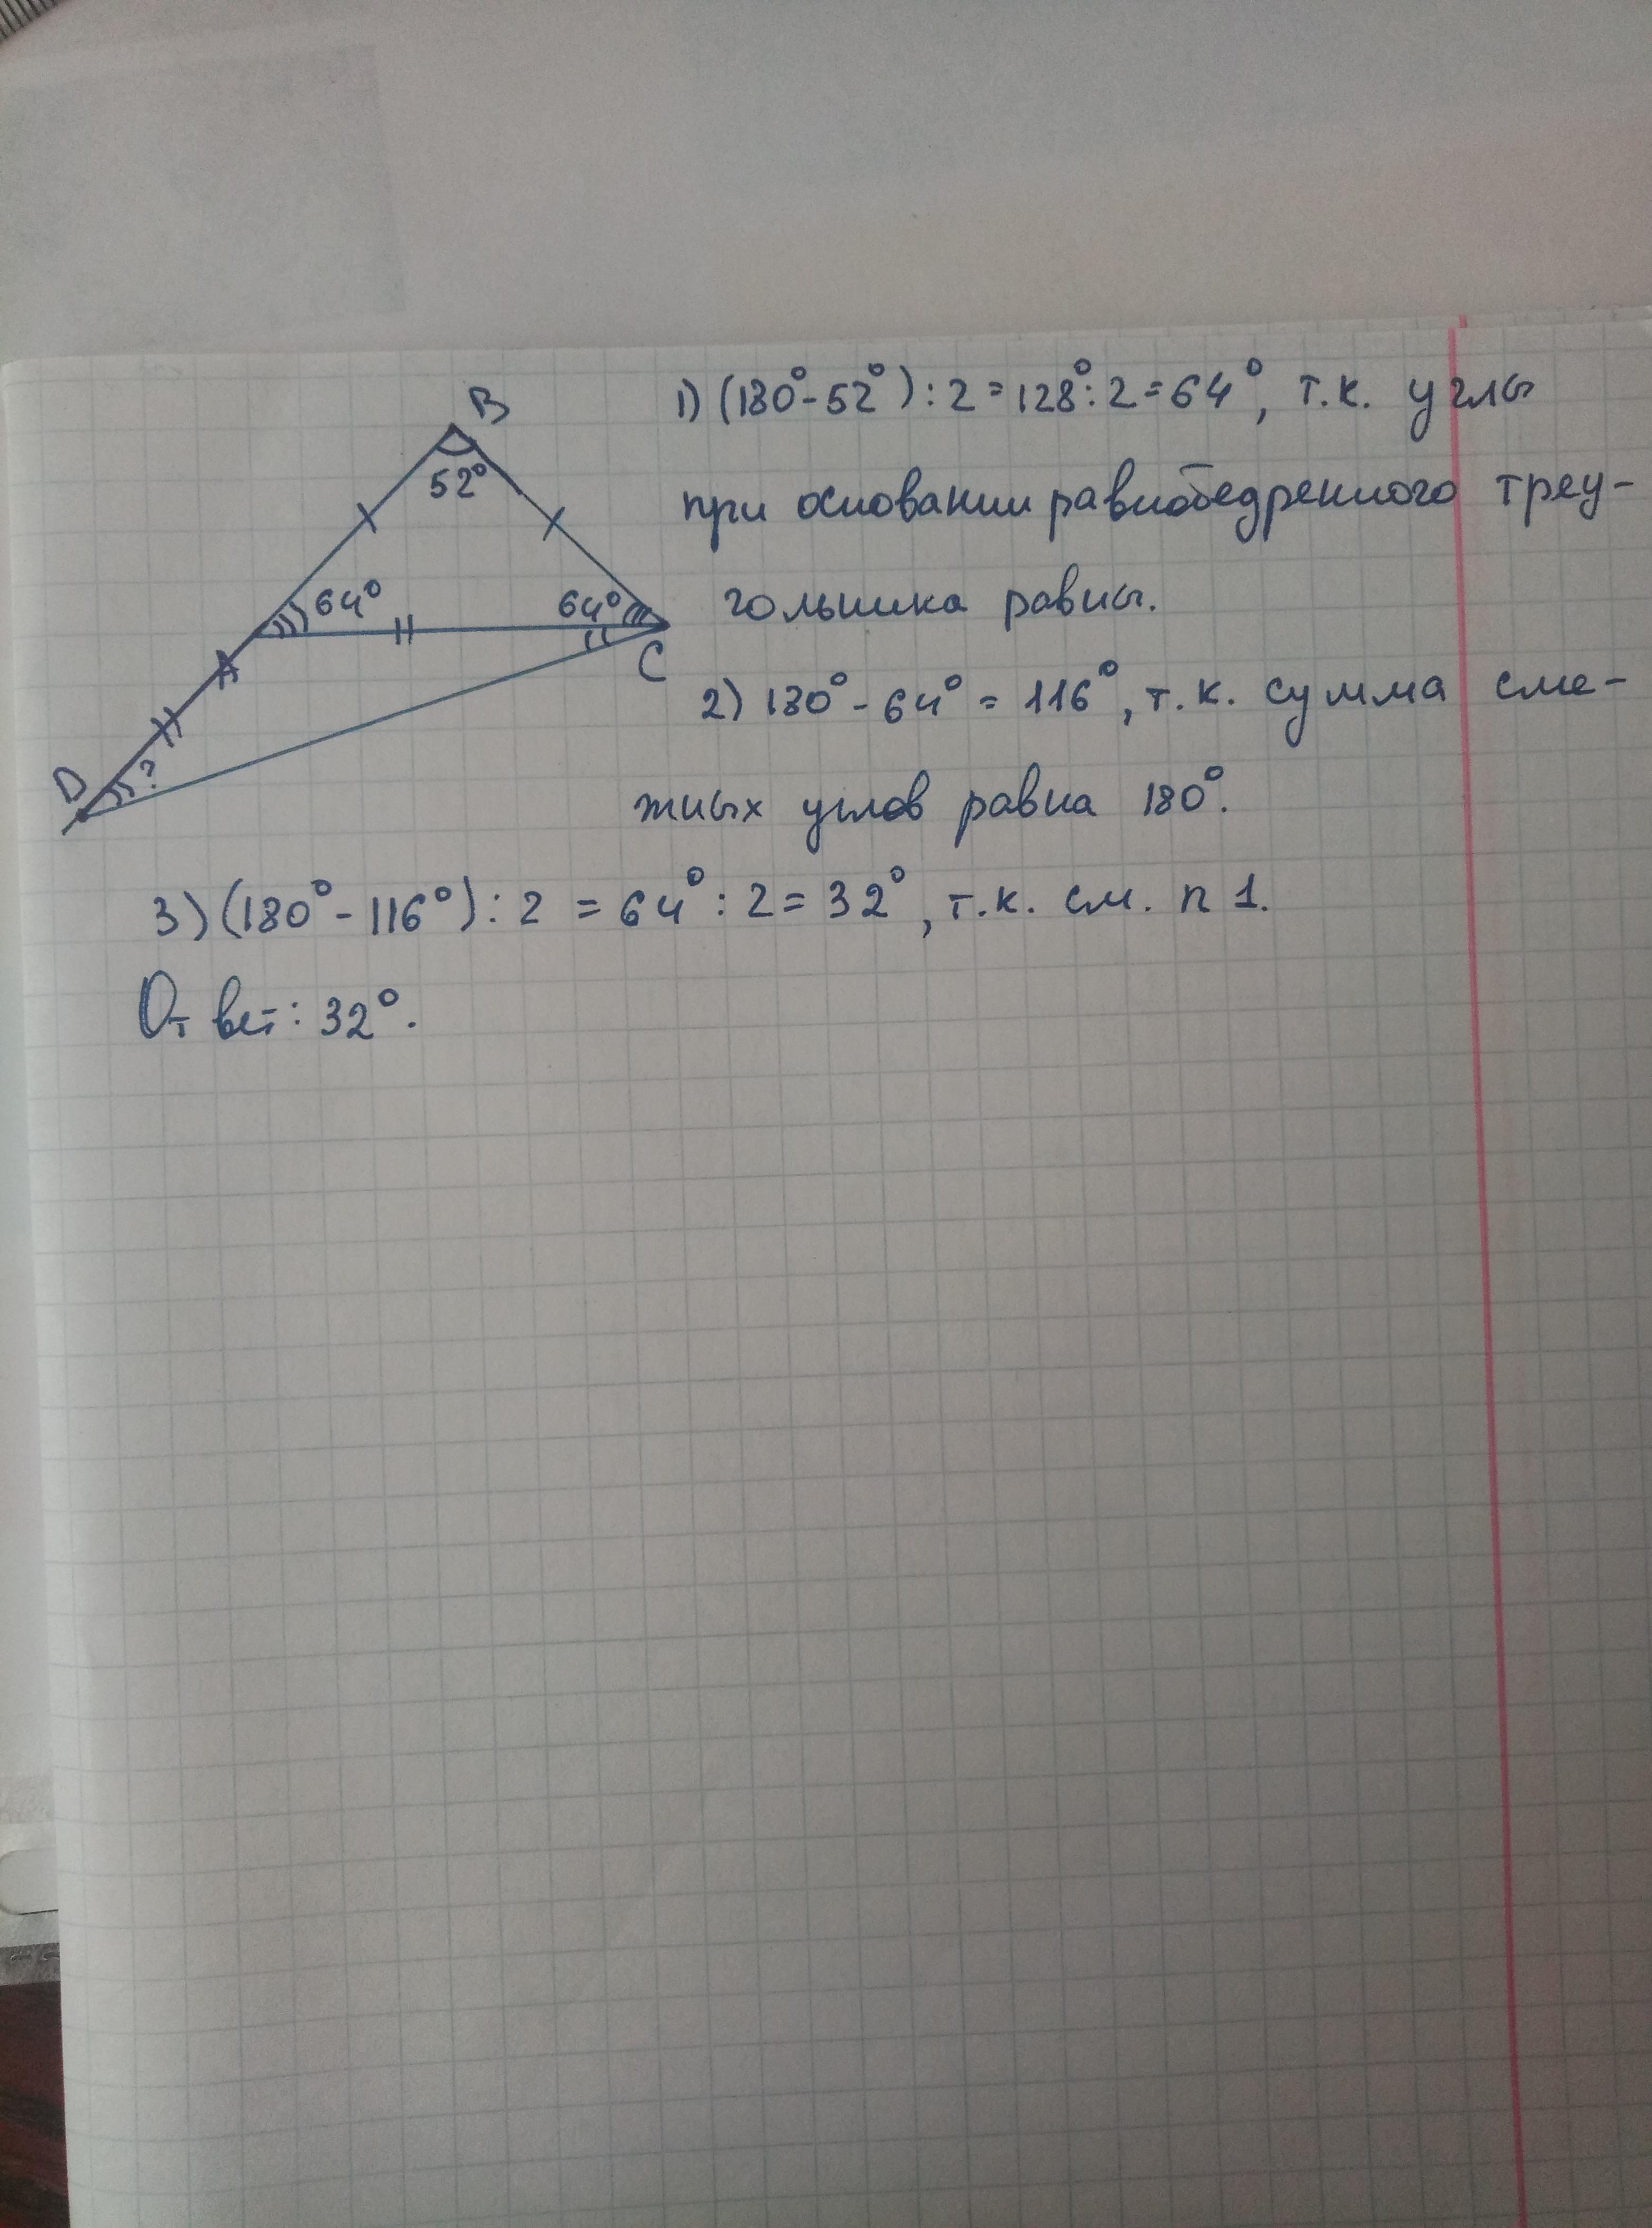 B
52°
64°
64°
A
C
D
?
1) (180° - 52°) : 2 = 128° : 2 = 64°, т.к. углы
при основании равнобедренного треу-
гольника равны.
2) 180° - 64° = 116°, т.к. сумма сме-
жных углов равна 180°.
3) (180° - 116°) : 2 = 64° : 2 = 32°, т.к. см. п 1.
Ответ: 32°.